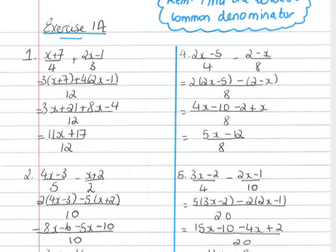 Rem: Find the lowest
common denominator
Exercise 1A
1. x+7/4 + 2x-1/3
= 3(x+7)+4(2x-1)/12
= 3x+21+8x-4/12
= 11x+17/12
2. 4x-3/5 - x+2/2
= 2(4x-3)-5(x+2)/10
= 8x-6-5x-10/10
4. 2x-5/4 - 2-x/8
= 2(2x-5)-(2-x)/8
= 4x-10-2+x/8
= 5x-12/8
5. 3x-2/4 - 2x-1/10
= 5(3x-2)-2(2x-1)/20
= 15x-10-4x+2/20